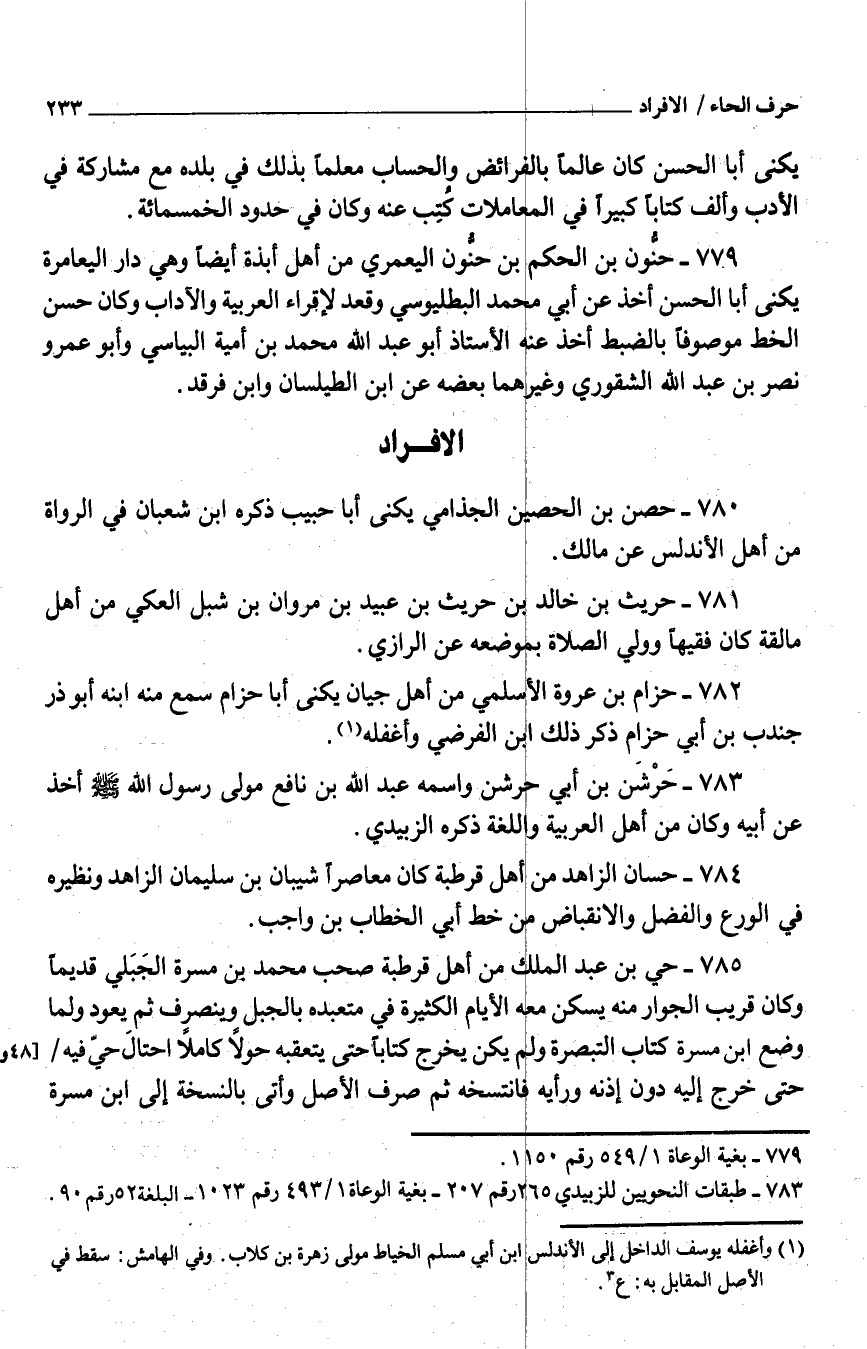 حرف الحاء / الافراد ٢٣٣
يكنى أبا الحسن كان عالماً بالفرائض والحساب معلماً بذلك في بلده مع مشاركة في
الأدب وألف كتاباً كبيراً في المعاملات كُتِب عنه وكان في حدود الخمسمائة.
٧٧٩ ـ حنُّون بن الحكم بن حنُّون اليعمري من أهل أبذة أيضاً وهي دار اليعامرة
يكنى أبا الحسن أخذ عن أبي محمد البطليوسي وقعد لإقراء العربية والآداب وكان حسن
الخط موصوفاً بالضبط أخذ عنه الأستاذ أبو عبد الله محمد بن أمية البياسي وأبو عمرو
نصر بن عبد الله الشقوري وغيرهما بعضه عن ابن الطيلسان وابن فرقد.
الافــراد
٧٨٠ ـ حصن بن الحصين الجذامي يكنى أبا حبيب ذكره ابن شعبان في الرواة
من أهل الأندلس عن مالك.
٧٨١ ـ حريث بن خالد بن حريث بن عبيد بن مروان بن شبل العكي من أهل
مالقة كان فقيهاً وولي الصلاة بموضعه عن الرازي.
٧٨٢ ـ حزام بن عروة الأسلمي من أهل جيان يكنى أبا حزام سمع منه ابنه أبو ذر
جندب بن أبي حزام ذكر ذلك ابن الفرضي وأغفله(١).
٧٨٣ ـ حَرْشَن بن أبي حرشن واسمه عبد الله بن نافع مولى رسول الله ﷺ أخذ
عن أبيه وكان من أهل العربية واللغة ذكره الزبيدي.
٧٨٤ ـ حسان الزاهد من أهل قرطبة كان معاصراً شيبان بن سليمان الزاهد ونظيره
في الورع والفضل والانقباض من خط أبي الخطاب بن واجب.
٧٨٥ ـ حي بن عبد الملك من أهل قرطبة صحب محمد بن مسرة الجَبَلي قديماً
وكان قريب الجوار منه يسكن معه الأيام الكثيرة في متعبده بالجبل وينصرف ثم يعود ولما
وضع ابن مسرة كتاب التبصرة ولم يكن يخرج كتاباً حتى يتعقبه حولًا كاملًا احتالَ حيّ فيه / [٤٨و
حتى خرج إليه دون إذنه ورأيه فانتسخه ثم صرف الأصل وأتى بالنسخة إلى ابن مسرة
٧٧٩ ـ بغية الوعاة ١/ ٥٤٩ رقم ١١٥٠.
٧٨٣ ـ طبقات النحويين للزبيدي ٢٦٥ رقم ٢٠٧ ـ بغية الوعاة ١/ ٤٩٣ رقم ١٠٢٣ ـ البلغة ٥٢ رقم ٩٠.
(١) وأغفله يوسف الداخل إلى الأندلس ابن أبي مسلم الخياط مولى زهرة بن كلاب. وفي الهامش: سقط في
الأصل المقابل به: ع٣.